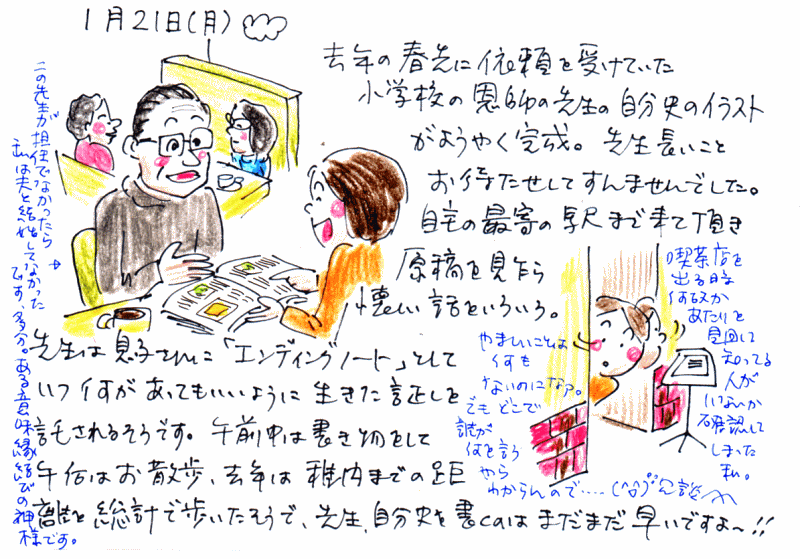 1月21日(月)
去年の春先に依頼を受けていた
小学校の恩師の先生の自分史のイラスト
がようやく完成。先生長いこと
お待たせしてすんませんでした。
自宅の最寄の駅まで来て頂き
原稿を見ながら
懐しい話といろいろ。
先生は息子さんに「エンディングノート」として
いつ何があってもいいように生きた証しを
託されるそうです。午前中は書き物をして
午后はお散歩、去年は稚内までの距
離を総計で歩いたそうで、先生、自分史を書くのはまだまだ早いですよ〜!!
この先生が担任でなかったら
私は夫と結婚してなかった
です、多分。ある意味縁結びの神様です。
喫茶店を
出る時
何故か
あたりを
見回して
知ってる
人が
いないか
確認して
しまった
私。
やましいことは
何も
ないのになぁ。
でもどこで
誰が
何を言う
やら
わからんので....(^o^)冗談